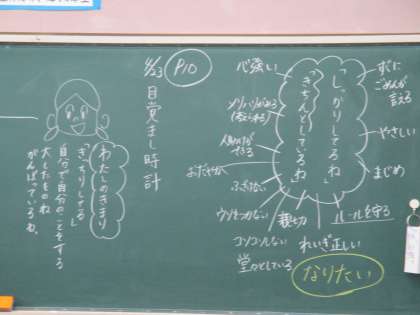 6/23
P10
目覚まし時計
わたしのきまり
「きっちりしてる」
自分で自分のことをする
大したものね
がんばっているね。
「しっかりしてるね」
「きちんとしているね」
すぐに
ごめんが
言える
やさしい
まじめ
ルールを守る
れいぎ正しい
親切
心強い
メリハリがある
人助けが
できる
おだやか
ふざけない
ウソをつかない
コソコソしない
堂々としている
なりたい